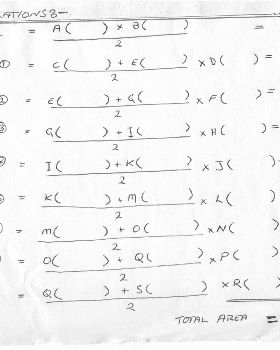 ATIONS:-
= A( ) × B( ) / 2 =
① = C( ) + E( ) / 2 × D( ) =
② = E( ) + G( ) / 2 × F( ) =
③ = G( ) + I( ) / 2 × H( ) =
= I( ) + K( ) / 2 × J( )
= K( ) + M( ) / 2 × L( )
= M( ) + O( ) / 2 × N( )
= O( ) + Q( ) / 2 × P( )
= Q( ) + S( ) / 2 × R( )
TOTAL AREA =